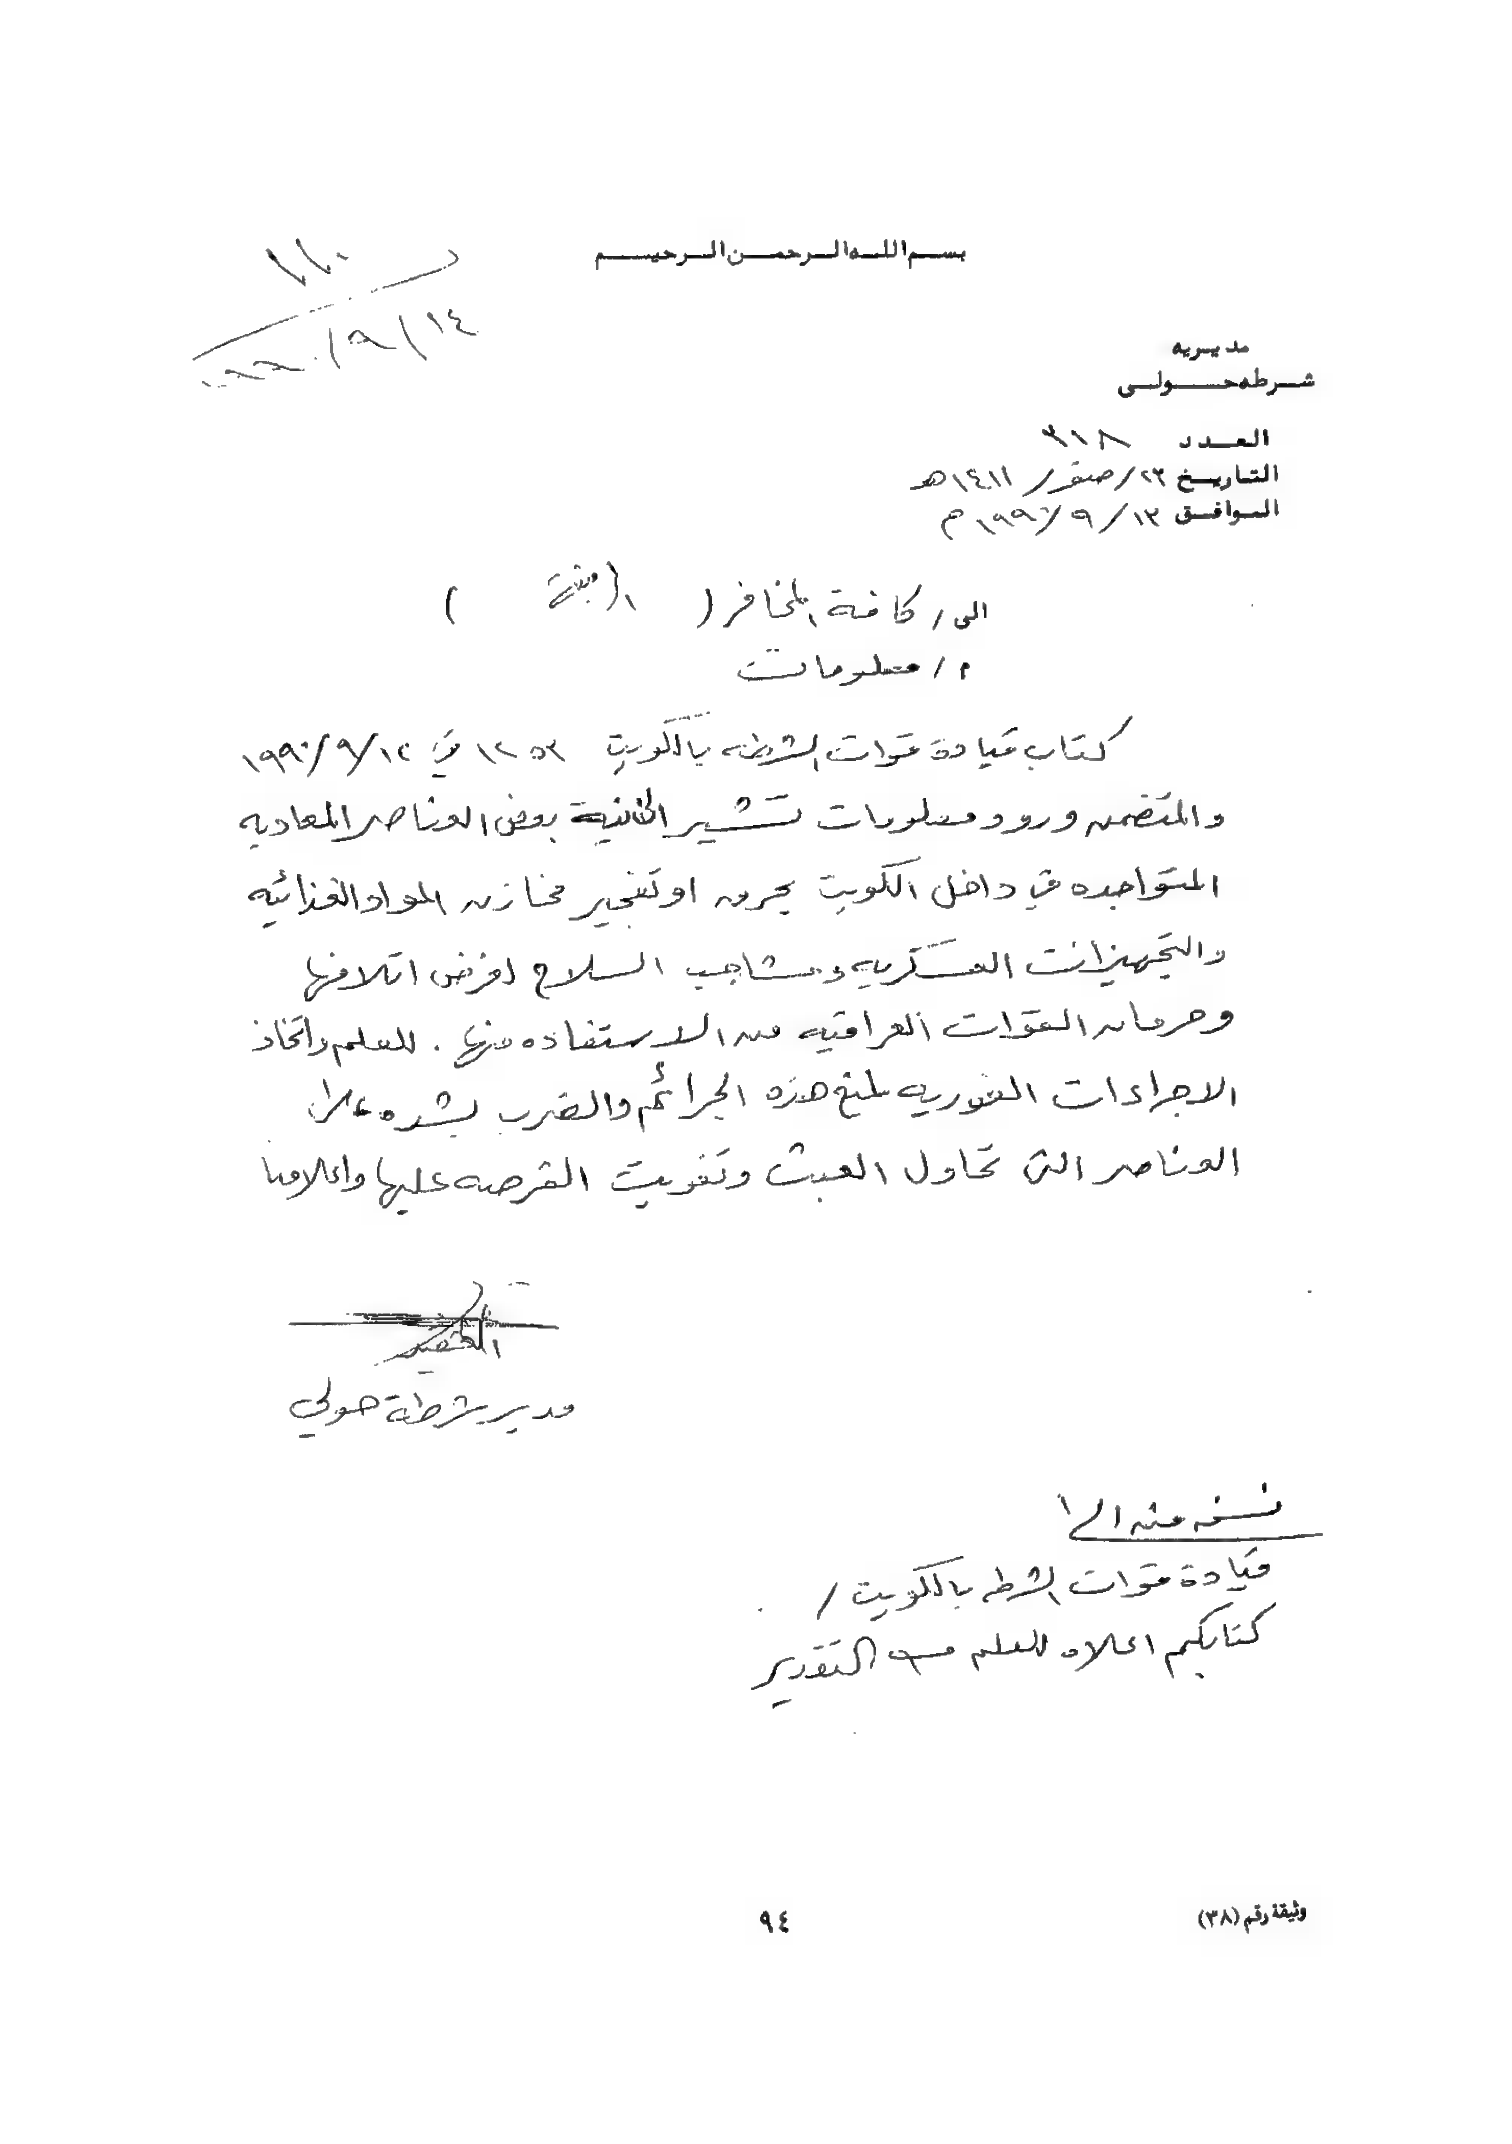 بسم الله الرحمن الرحيم
١١٠
١٤/٩/١٩٩٠
مديريه
شرطه حولي
العدد ٣١٨
التاريخ ٢٣/صفر/١٤١١هـ
الموافق ١٣/٩/١٩٩٠م
الى/ كافة المخافر ( )
م/ معلومات
كتاب قيادة قوات الشرطه بالكويت ١٢٥٣ في ١٢/٩/١٩٩٠
والمتضمن ورود معلومات تشير الى نية بعض العناصر المعاديه
المتواجده في داخل الكويت بحرق او تفجير مخازن المواد الغذائيه
والتجهيزات العسكريه ومشاجب السلاح لغرض اتلافها
وحرمان القوات العراقيه من الاستفاده منها . للعلم واتخاذ
الاجراءات الفوريه لمنع هذه الجرائم والضرب بشده على
العناصر التي تحاول العبث وتفويت الفرصه عليها واعلامنا
مدير شرطة حولي
نسخه منه الى/
قيادة قوات الشرطه بالكويت /
كتابكم اعلاه للعلم مع التقدير
وثيقة رقم (٣٨)
٩٤